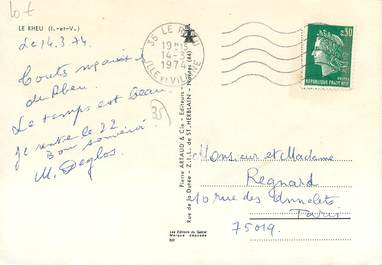 10 €
LE RHEU (I.-et-V.)
Le 14.3.74
du Rheu.
Le temps est beau
je rentre le 22
Bon souvenir
M. Deglos.
35
35 LE RHEU
19H
14-3
1974
ILLE-ET-VILAINE
0,30
REPUBLIQUE FRANÇAISE
Pierre ARTAUD & Cie - Éditeurs
Rue de la Durée - Z.I.L. de ST. HERBLAIN - Nantes (44)
Les Editions du Gabier
Marque déposée
Monsieur et Madame
Regnard
10 rue des Annelets
Paris
75019.